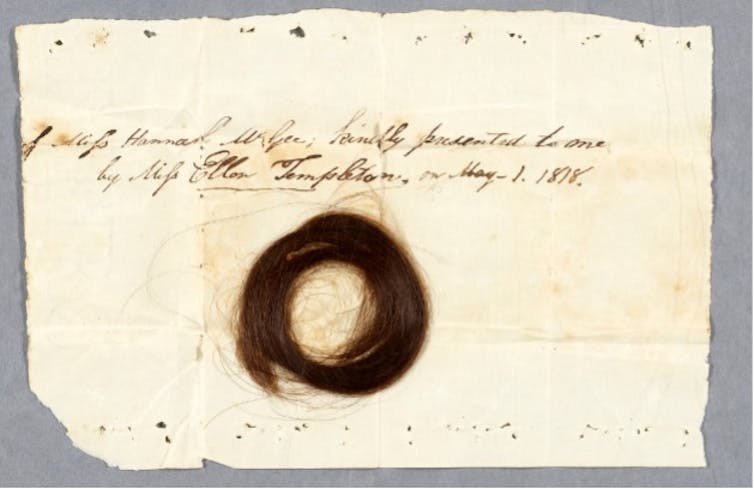 of Miss Hannah McGee; kindly presented to me
by Miss Ellen Templeton, on May 1. 1818.